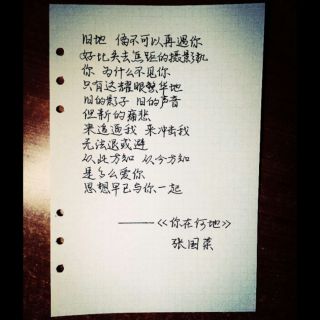 旧地 倘不可以再遇你
好比失去焦距的摄影机
你 为什么不见你
只有这耀眼繁华地
旧的影子 旧的声音
但新的痛悲
来追逼我 来冲击我
无法退或避
从此方知 从今方知
是多么爱你
思想早已与你一起
——《你在何地》
张国荣